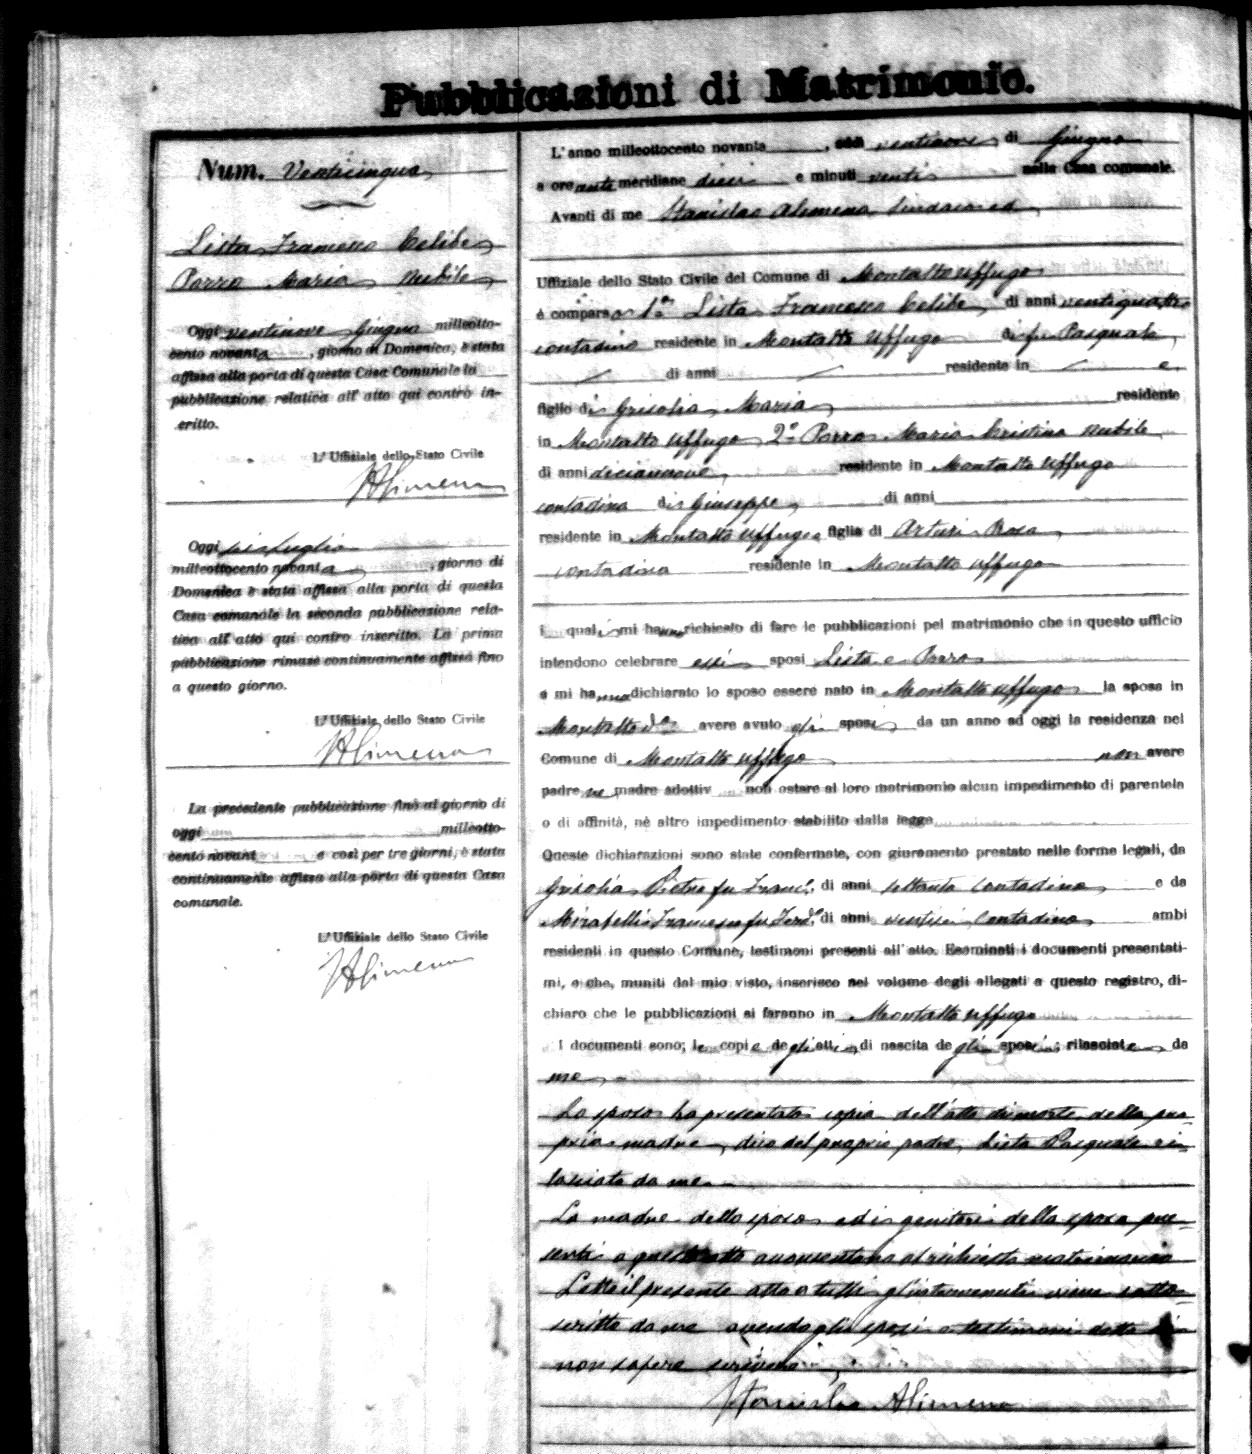 Pubblicazioni di Matrimonio.
Num. Venticinque
Lista Francesco Celibe
Porro Maria Nubile
Oggi ventinove Giugno milleotto-
cento novanta, giorno di Domenica, è stata
affissa alla porta di questa Casa Comunale la
pubblicazione relativa all' atto qui contro in-
critto.
L' Uffiziale dello Stato Civile
Alimena
Oggi sei Luglio
milleottocento novanta, giorno di
Domenica è stata affissa alla porta di questa
Casa comunale la seconda pubblicazione rela-
tiva all' atto qui contro inscritto. La prima
pubblicazione rimase continuamente affissa fino
a questo giorno.
L' Uffiziale dello Stato Civile
Alimena
La precedente pubblicazione fino al giorno di
oggi milleotto-
cento novant e così per tre giorni, è stata
continuamente affissa alla porta di questa Casa
comunale.
L' Uffiziale dello Stato Civile
Alimena
L' anno milleottocento novanta, addì ventinove di Giugno
a ore ante meridiane dieci e minuti venti nella Casa comunale.
Avanti di me Stanislao Alimena, Sindaco ed
Uffiziale dello Stato Civile del Comune di Montalto Uffugo
è comparso 1° Lista Francesco Celibe, di anni ventiquattro
contadino residente in Montalto Uffugo di fu Pasquale,
di anni residente in e
figlio di Grisolia Maria residente
in Montalto Uffugo 2° Porro Maria Cristina nubile
di anni diciannove, residente in Montalto Uffugo
contadina di Giuseppe, di anni
residente in Montalto Uffugo figlia di Arturi Rosa,
contadina residente in Montalto Uffugo
i quali mi hanno richiesto di fare le pubblicazioni pel matrimonio che in questo ufficio
intendono celebrare essi sposi Lista e Porro
e mi hanno dichiarato lo sposo essere nato in Montalto Uffugo la sposa in
Montalto do avere avuto gli sposi da un anno ad oggi la residenza nel
Comune di Montalto Uffugo non avere
padre ne madre adottiv non ostare al loro matrimonio alcun impedimento di parentela
o di affinità, nè altro impedimento stabilito dalla legge
Queste dichiarazioni sono state confermate, con giuramento prestato nelle forme legali, da
Grisolia Pietro fu Franc. di anni settanta contadino e da
Mirabelli Francesco fu Ferd. di anni contadino ambi
residenti in questo Comune, testimoni presenti all' atto. Esaminati i documenti presentati-
mi, e che, muniti dal mio visto, inserisco nel volume degli allegati a questo registro, di-
chiaro che le pubblicazioni si faranno in Montalto Uffugo
I documenti sono; le copie degli atti di nascita degli sposi; rilasciate da
me
Lo sposo ha presentato copia dell' atto di morte della pro-
pria madre, dico del proprio padre, Lista Pasquale ri-
lasciata da me.
La madre dello sposo ed i genitori della sposa pre-
senti a quest' atto acconsentono al richiesto matrimonio
Letto il presente atto a tutti gl'intervenuti viene sotto-
scritto da me avendo gli sposi e testimoni detto di
non sapere scrivere.
Stanislao Alimena